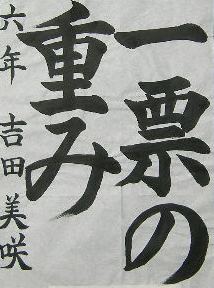 一票の
重み
六年 吉田美咲